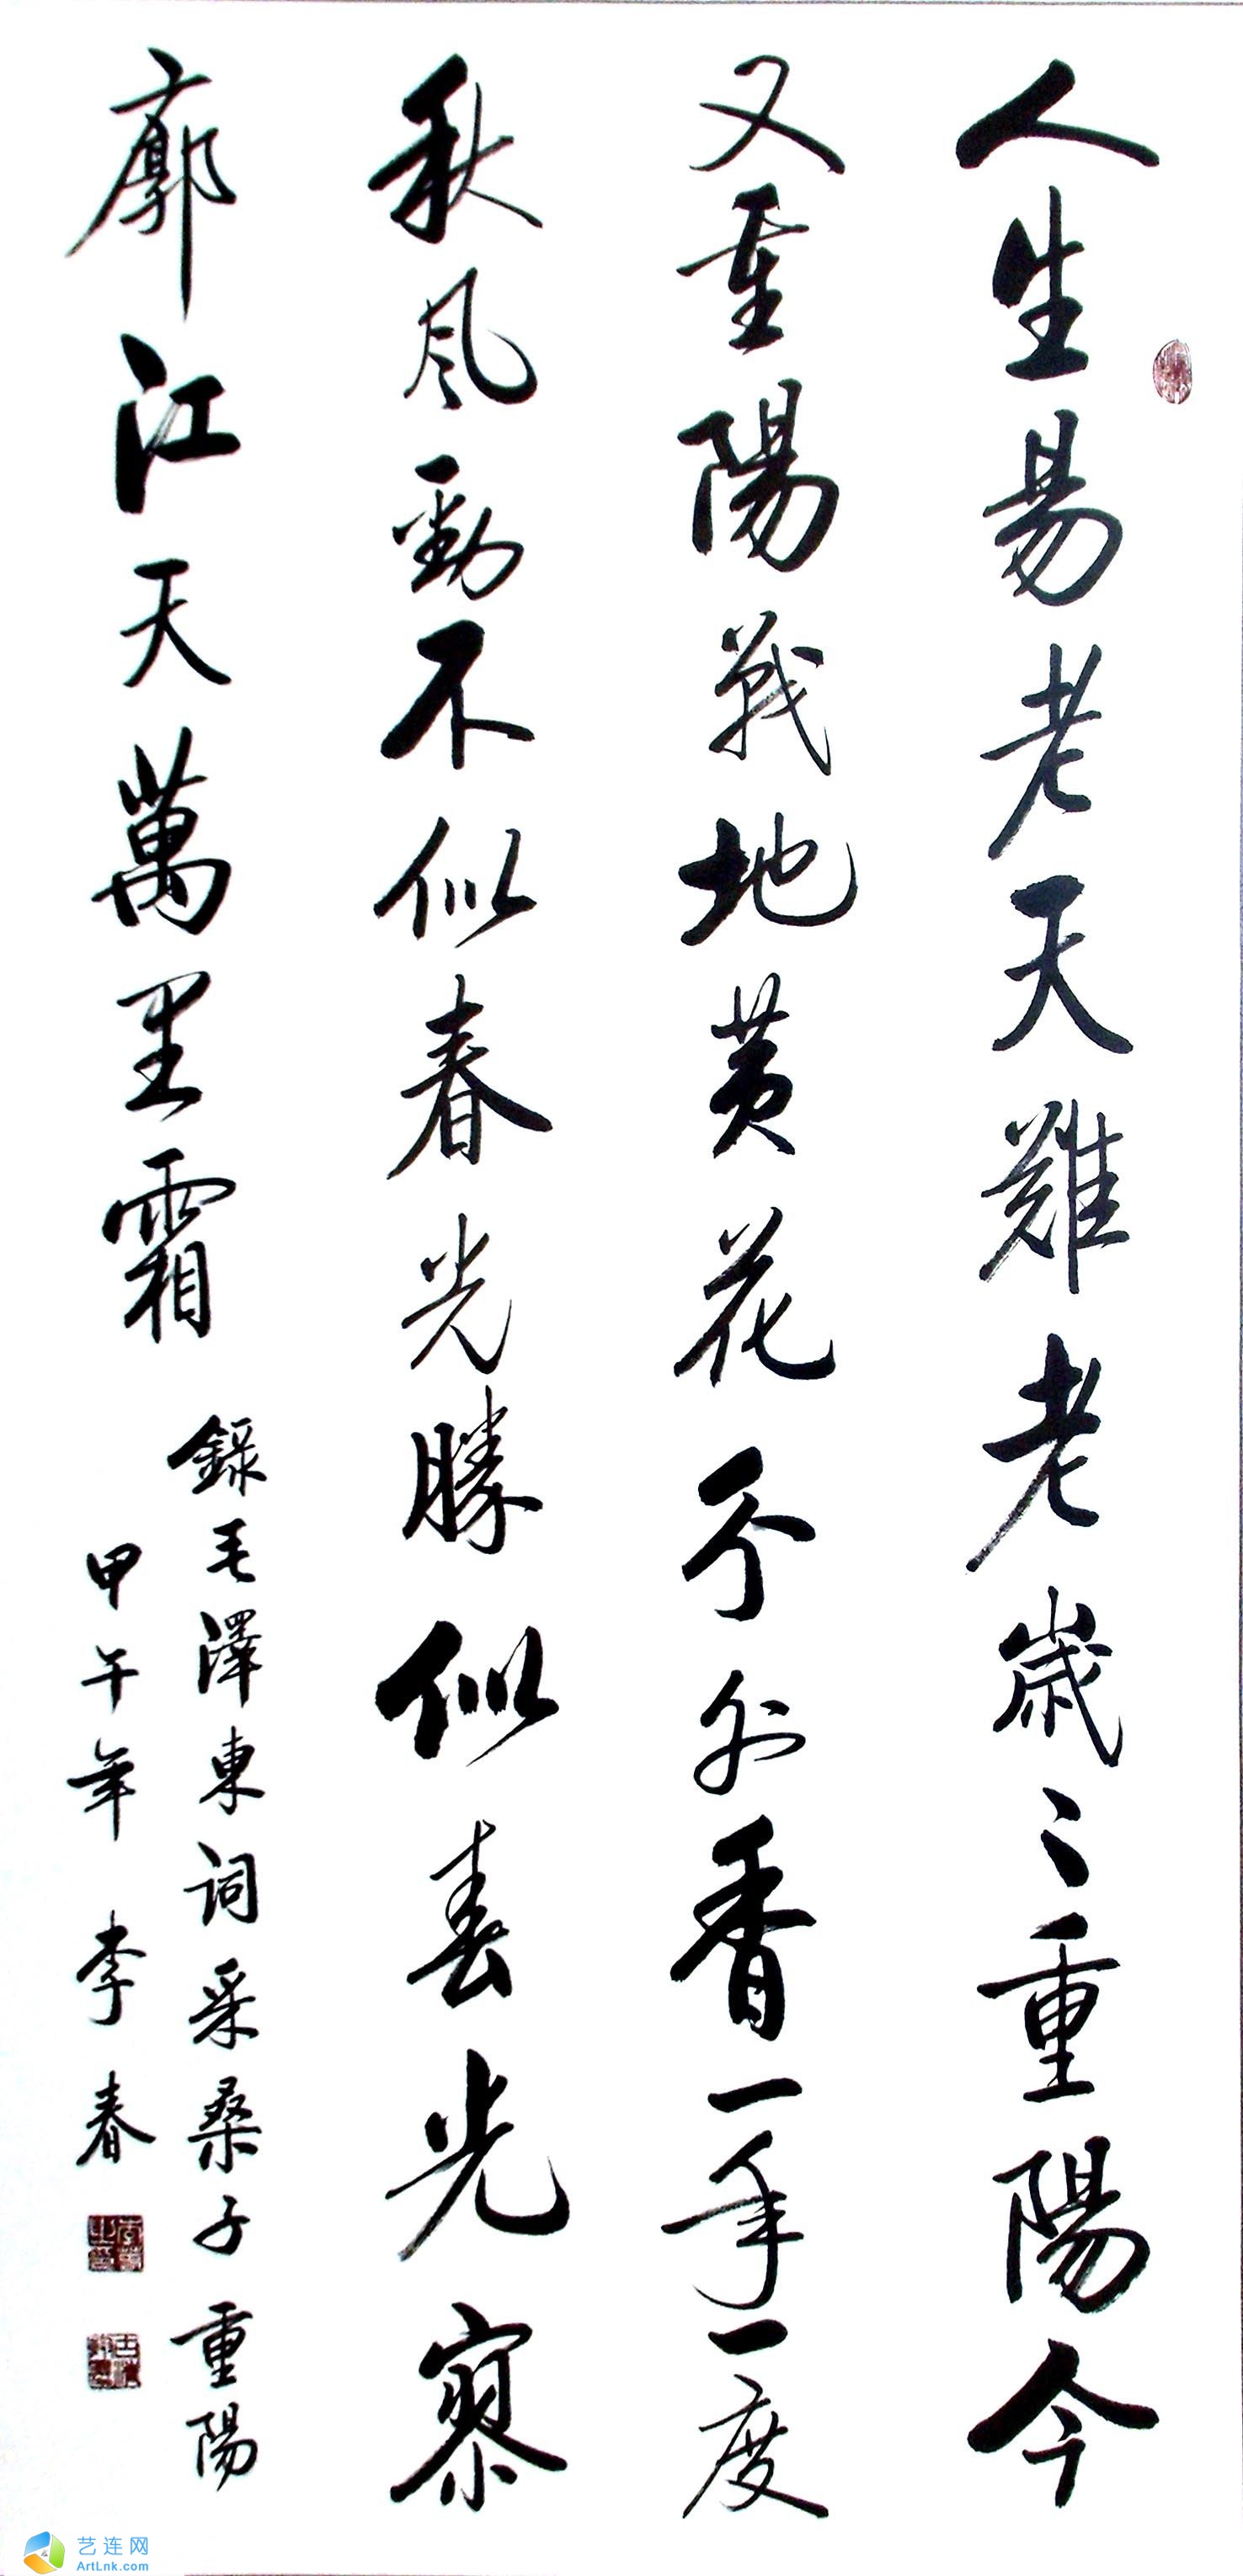 人生易老天難老歲々重陽今
又重陽戰地黄花分外香一年一度
秋風勁不似春光勝似春光寥
廓江天萬里霜
錄毛澤東詞采桑子重陽
甲午年 李春
艺连网
ArtLnk.com